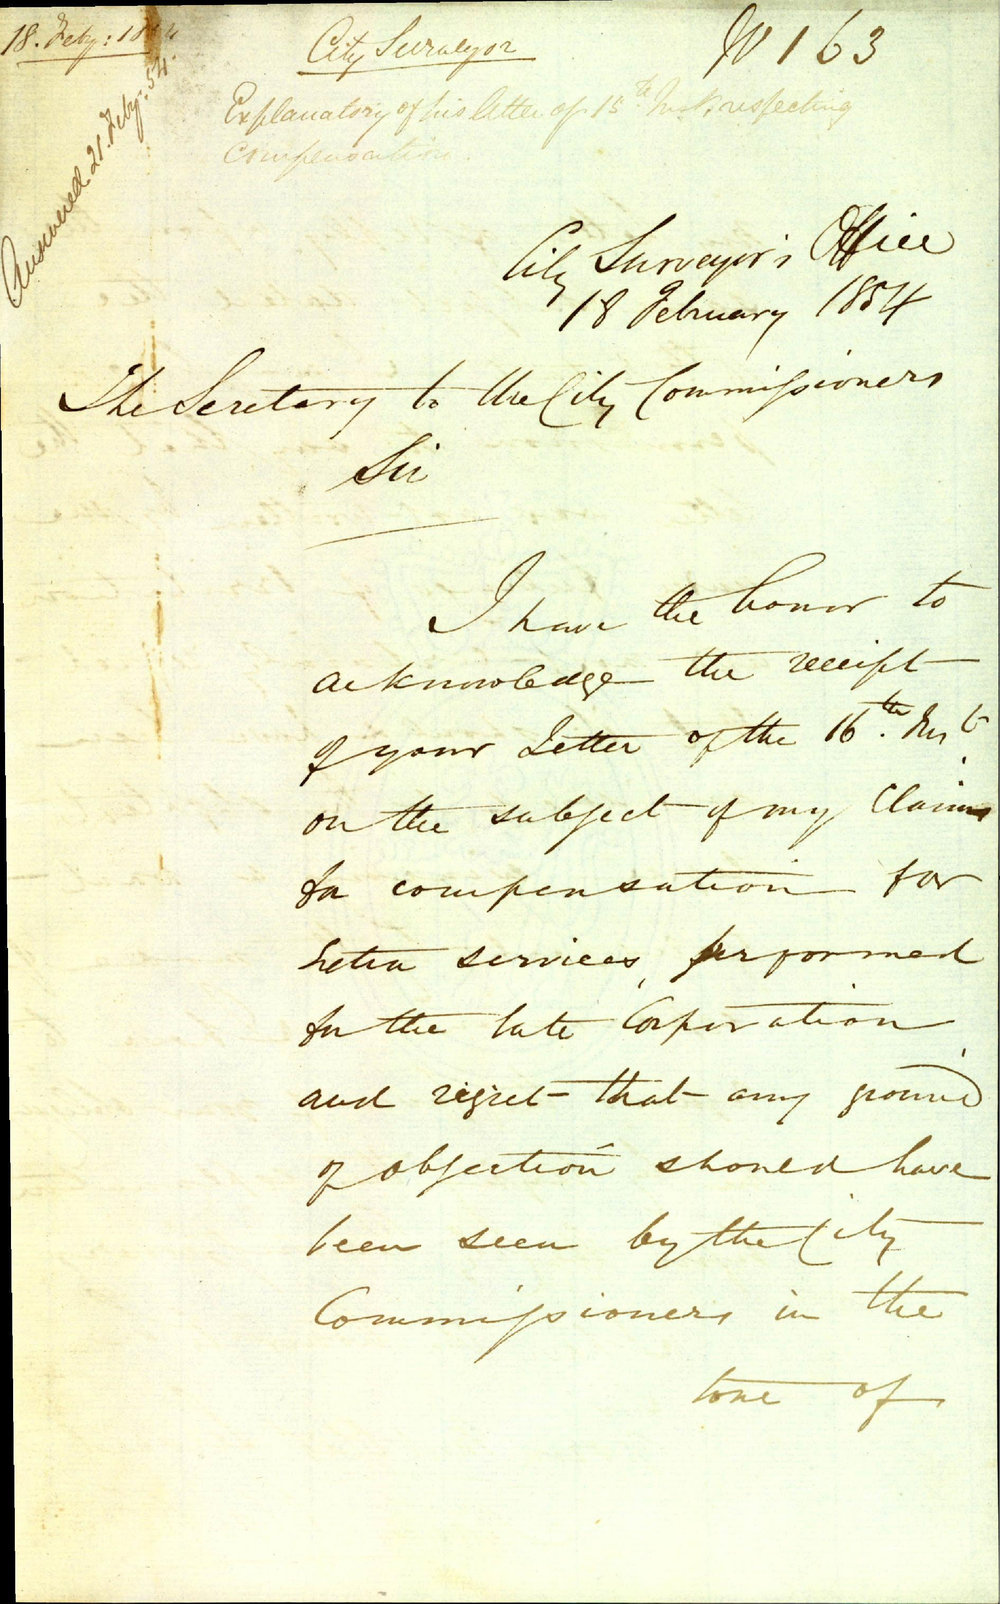 18. Feby: 1854
City Surveyor
No 163
Explanatory of his letter of 15th Inst. respecting
compensation.
Answered 21. Feby. 54.
City Surveyor's Office
18 February 1854
The Secretary to the City Commissioners
Sir
I have the honor to
acknowledge the receipt
of your Letter of the 16th. Inst
on the subject of my Claims
for compensation for
Extra services, performed
for the late Corporation
and regret that any ground
of objection should have
been seen by the City
Commissioners in the
tone of